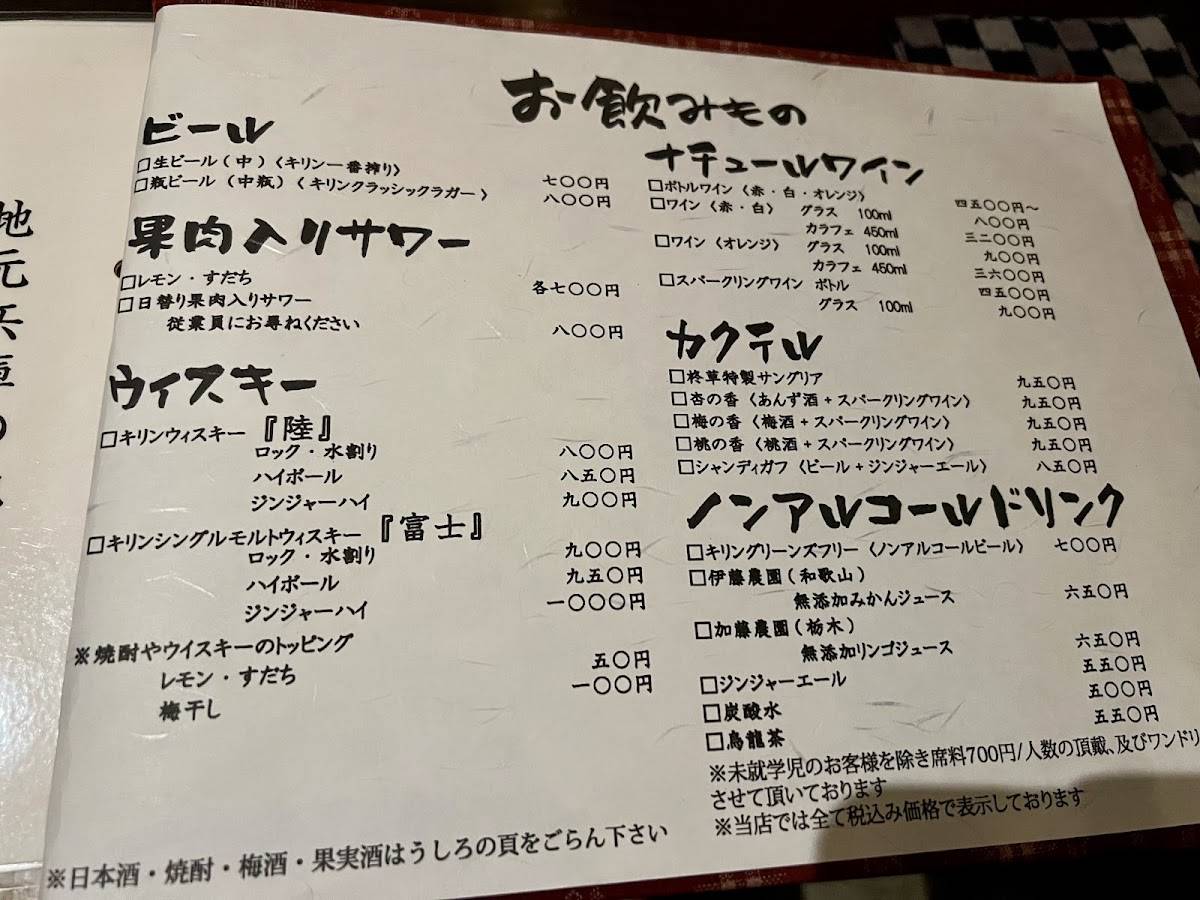 お飲みもの
ビール
□生ビール（中）〈キリン一番搾り〉 七〇〇円
□瓶ビール（中瓶）〈キリンクラッシックラガー〉 八〇〇円
果肉入りサワー
□レモン・すだち 各七〇〇円
□日替り果肉入りサワー
従業員にお尋ねください 八〇〇円
ウィスキー
□キリンウィスキー『陸』
ロック・水割り 八〇〇円
ハイボール 八五〇円
ジンジャーハイ 九〇〇円
□キリンシングルモルトウィスキー『富士』
ロック・水割り 九〇〇円
ハイボール 九五〇円
ジンジャーハイ 一〇〇〇円
※焼酎やウイスキーのトッピング
レモン・すだち 五〇円
梅干し 一〇〇円
※日本酒・焼酎・梅酒・果実酒はうしろの頁をごらん下さい
ナチュールワイン
□ボトルワイン〈赤・白・オレンジ〉 四五〇〇円～
□ワイン〈赤・白〉 グラス 100ml 八〇〇円
カラフェ 450ml 三二〇〇円
□ワイン〈オレンジ〉 グラス 100ml 九〇〇円
カラフェ 450ml 三六〇〇円
□スパークリングワイン ボトル 四五〇〇円
グラス 100ml 九〇〇円
カクテル
□柊草特製サングリア 九五〇円
□杏の香〈あんず酒+スパークリングワイン〉 九五〇円
□梅の香〈梅酒+スパークリングワイン〉 九五〇円
□桃の香〈桃酒+スパークリングワイン〉 九五〇円
□シャンディガフ〈ビール+ジンジャーエール〉 八五〇円
ノンアルコールドリンク
□キリングリーンズフリー〈ノンアルコールビール〉 七〇〇円
□伊藤農園（和歌山）
無添加みかんジュース 六五〇円
□加藤農園（栃木）
無添加リンゴジュース 六五〇円
□ジンジャーエール 五五〇円
□炭酸水 五〇〇円
□烏龍茶 五五〇円
※未就学児のお客様を除き席料700円/人数の頂戴、及びワンドリ
させて頂いております
※当店では全て税込み価格で表示しております
地元兵庫の